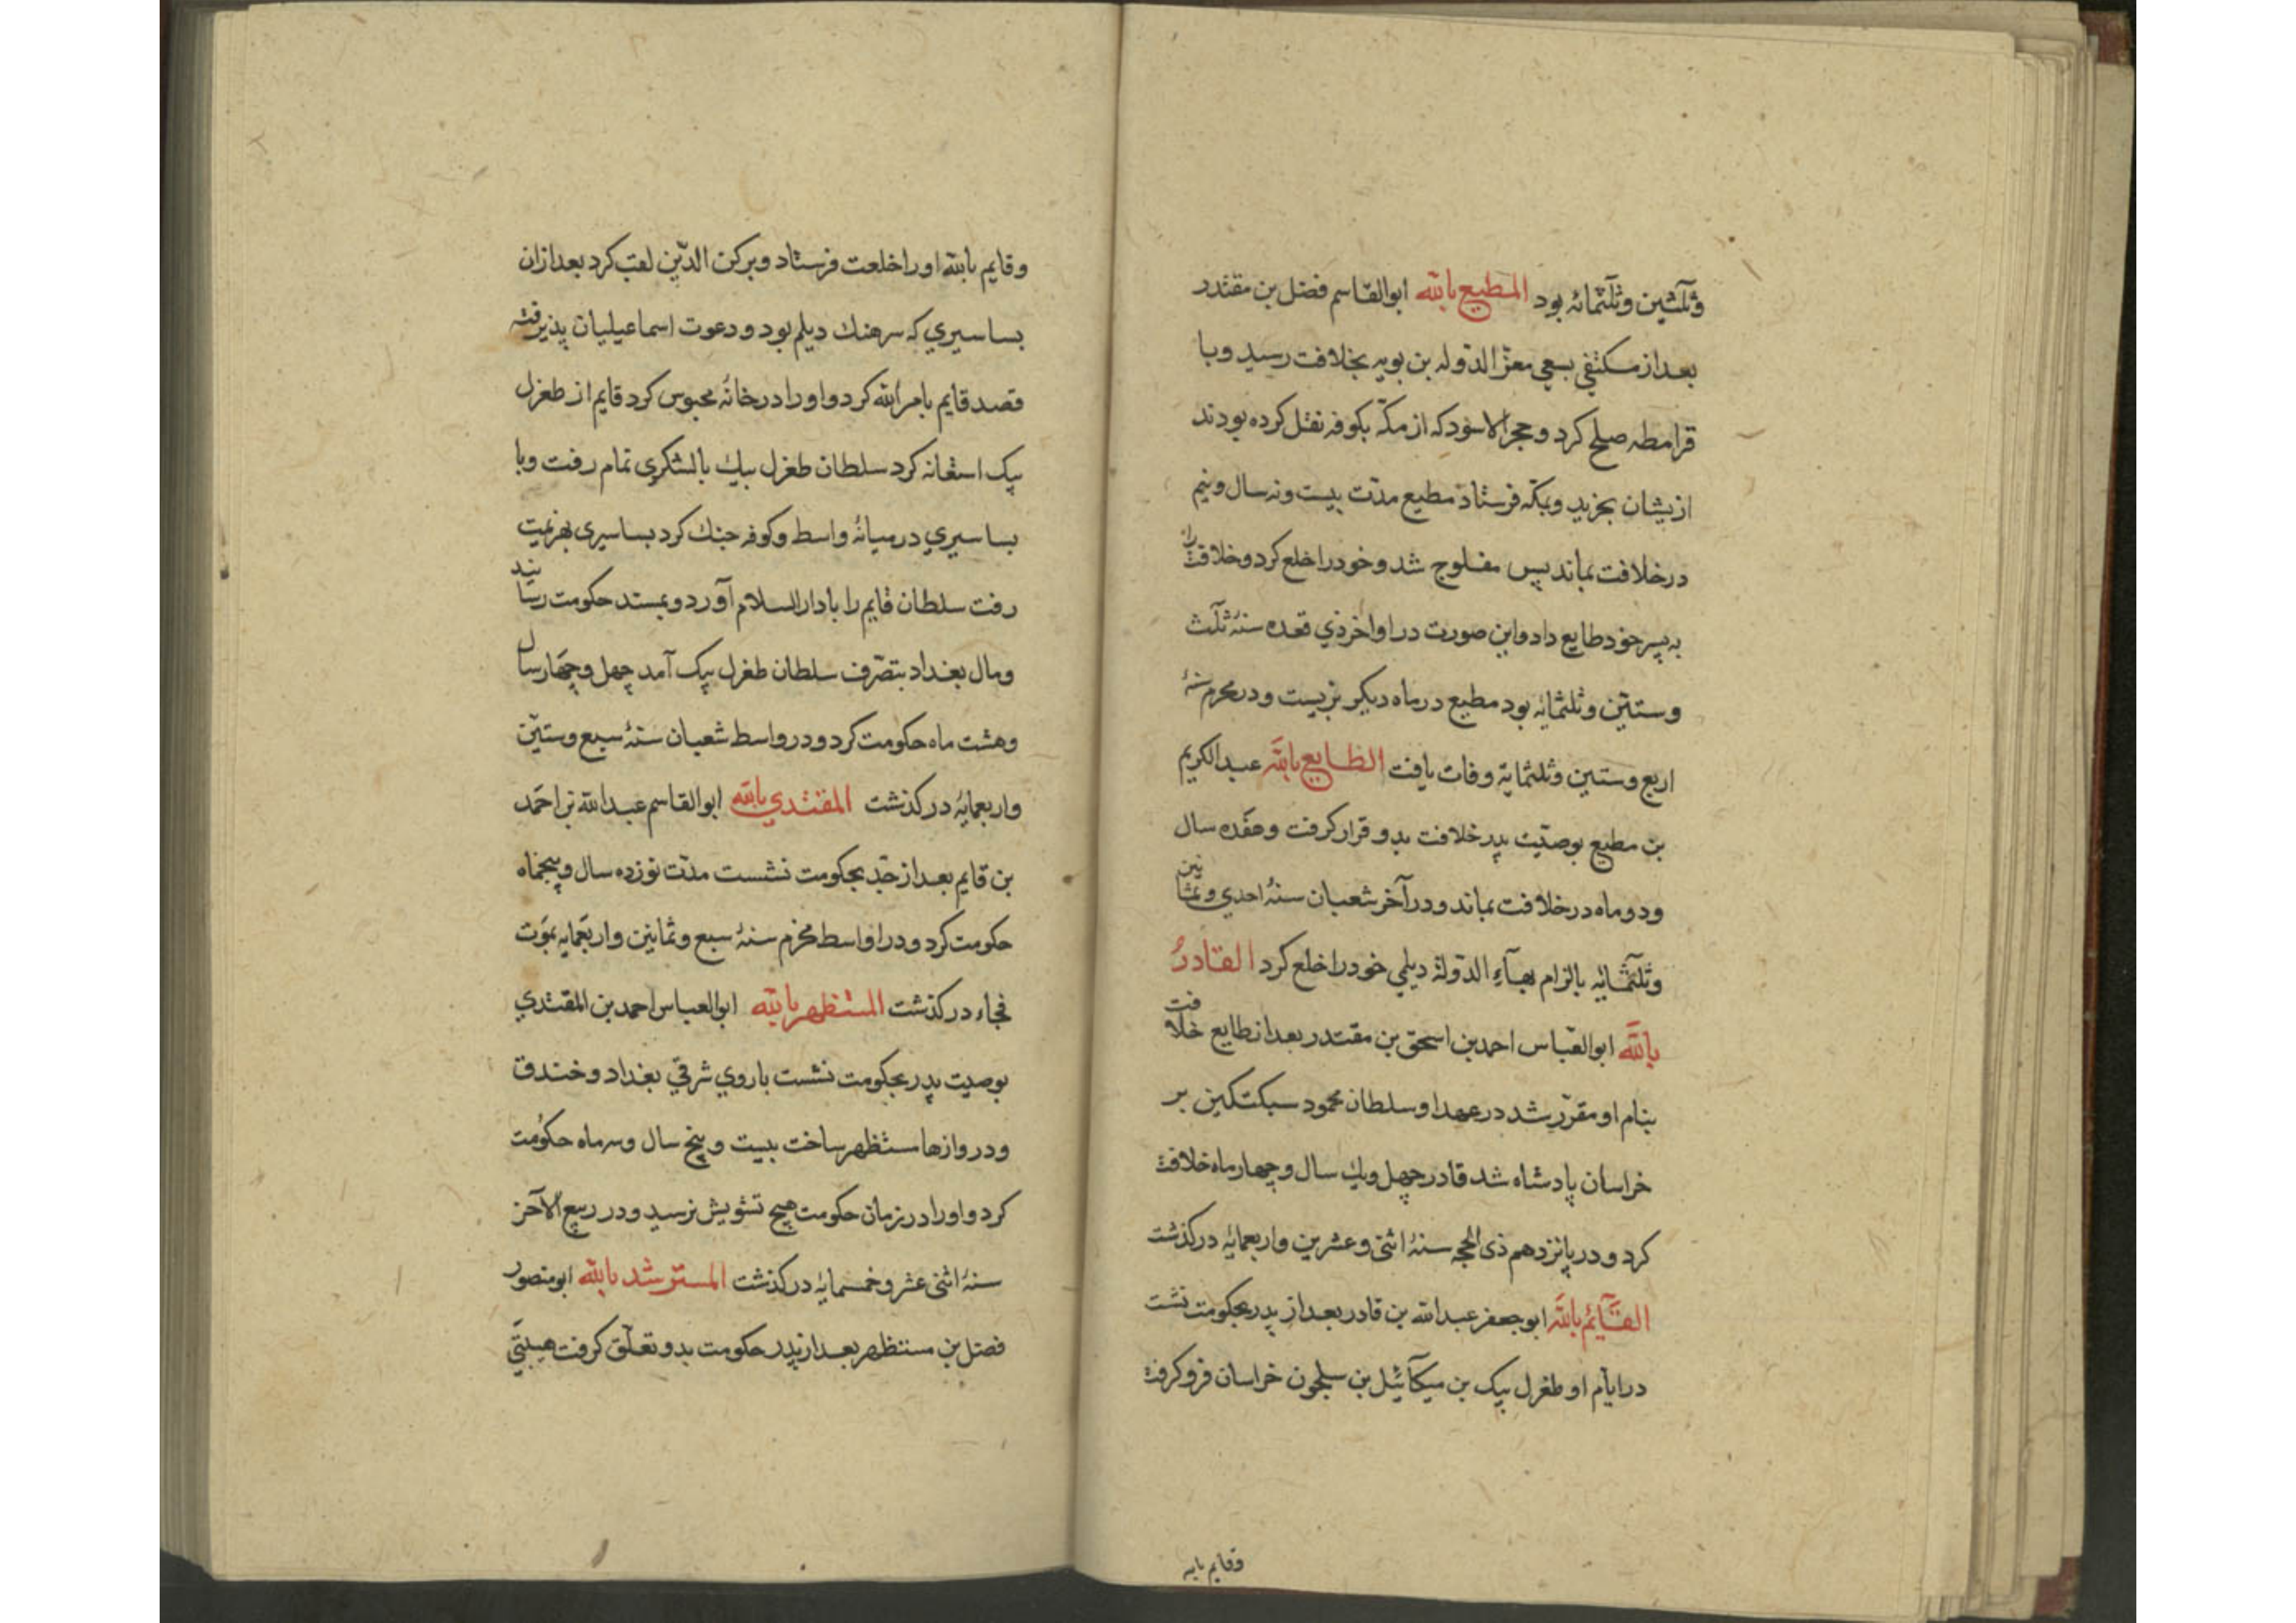 وثلٰثین وثلٰثمائه بود المطیع بالله ابوالقاسم فضل بن مقتدر
بعد از مسکتفی بسعی معزّ الدّوله بن بویه بخلافت رسید وبا
قرامطه صلح کرد و حجر الاسود که از مکّه بکوفه نقل کرده بودند
ازیشان بخزید وبمکّه فرستاد مطیع مدّت بیست ونه سال ونیم
درخلافت بماند پس مفلوج شد وخود را خلع کرد وخلافت را
به پسر خود طایع داد واین صورت در اواخر ذي قعده سنهٔ ثلٰث
وستین وثلثمایٔه بود مطیع در ماه دیکر بزیست ودر محرم سنهٔ
اربع وستین وثلثمایة وفات یافت الطایع بالله عبد الکریم
بن مطیع بوصیّت پدر خلافت بدو قرار کرفت وهفده سال
ودو ماه در خلافت بماند ودر آخر شعبان سنهٔ احدي وثمانین
وثلثمٰایٔه بالزام بهآء الدّولهٔ دیلمي خود را خلع کرد القادرُ
باللّٰه ابوالعبّاس احمد بن اسحق بن مقتدر بعد از طایع خلافت
بنام او مقرّر شد در عهد او سلطان محمود سبکتکین بر
خراسان پادشاه شد قادر چهل ویك سال وچهار ماه خلافت
کرد ودر پانزدهم ذی الحجه سنهٔ اثنی وعشرین واربعمایٔه درکذشت
القآیٔم باللّٰه ابوجعفر عبد الله بن قادر بعد از پدر بحکومت نشت
در ایّام او طغرل بیک بن میکآئیل بن سلجون خراسان فروکرفت
وقایم بالله
وقایم بالله او را خلعت فرستاد وبرکن الدّین لقب کرد بعد ازان
بساسیري که سرهنك دیلم بود ودعوت اسماعیلیان پذیرفته
قصد قایم بامر الله کرد واو را در خانهٔ محبوس کرد قایم از طغرل
بیک استغانه کرد سلطان طغرل بیك بالشکری تمام رفت وبا
بساسیري در میانهٔ واسط وکوفه جنك کرد بساسیری بهزیمت
رفت سلطان قایم را بادار السلام آورد وبمسند حکومت رسانید
ومال بغداد بتصّرف سلطان طغرل بیک آمد چهل وچهار سال
وهشت ماه حکومت کرد ودر واسط شعبان سنهٔ سبع وستیّن
واربعمایٔه درکذشت المقتدي بالله ابوالقاسم عبد الله بن احمَد
بن قایم بعد از جّد بحکومت نشست مدّت نوزده سال وپنجماه
حکومت کرد ودر اواسط محرم سنهٔ سبع وثمانین واربَعمایه بموَت
فجاء درکذشت المستظهر بالله ابوالعباس احمد بن المقتدي
بوصیت پدر بحکومت نشست باروي شرقي بغداد وخندق
ودروازها مستظهر ساخت بیست وپنج سال وسه ماه حکوُمت
کرد واو را در زمان حکومت هیچ تشویش نرسید ودر ربیع الآخر
سنهٔ اثنی عشر وخمسمایهٔ درکذشت المسترشد بالله ابومنصور
فضل بن مستظهر بعد از پدر حکومت بدو تعلّق کرفت هیبتي